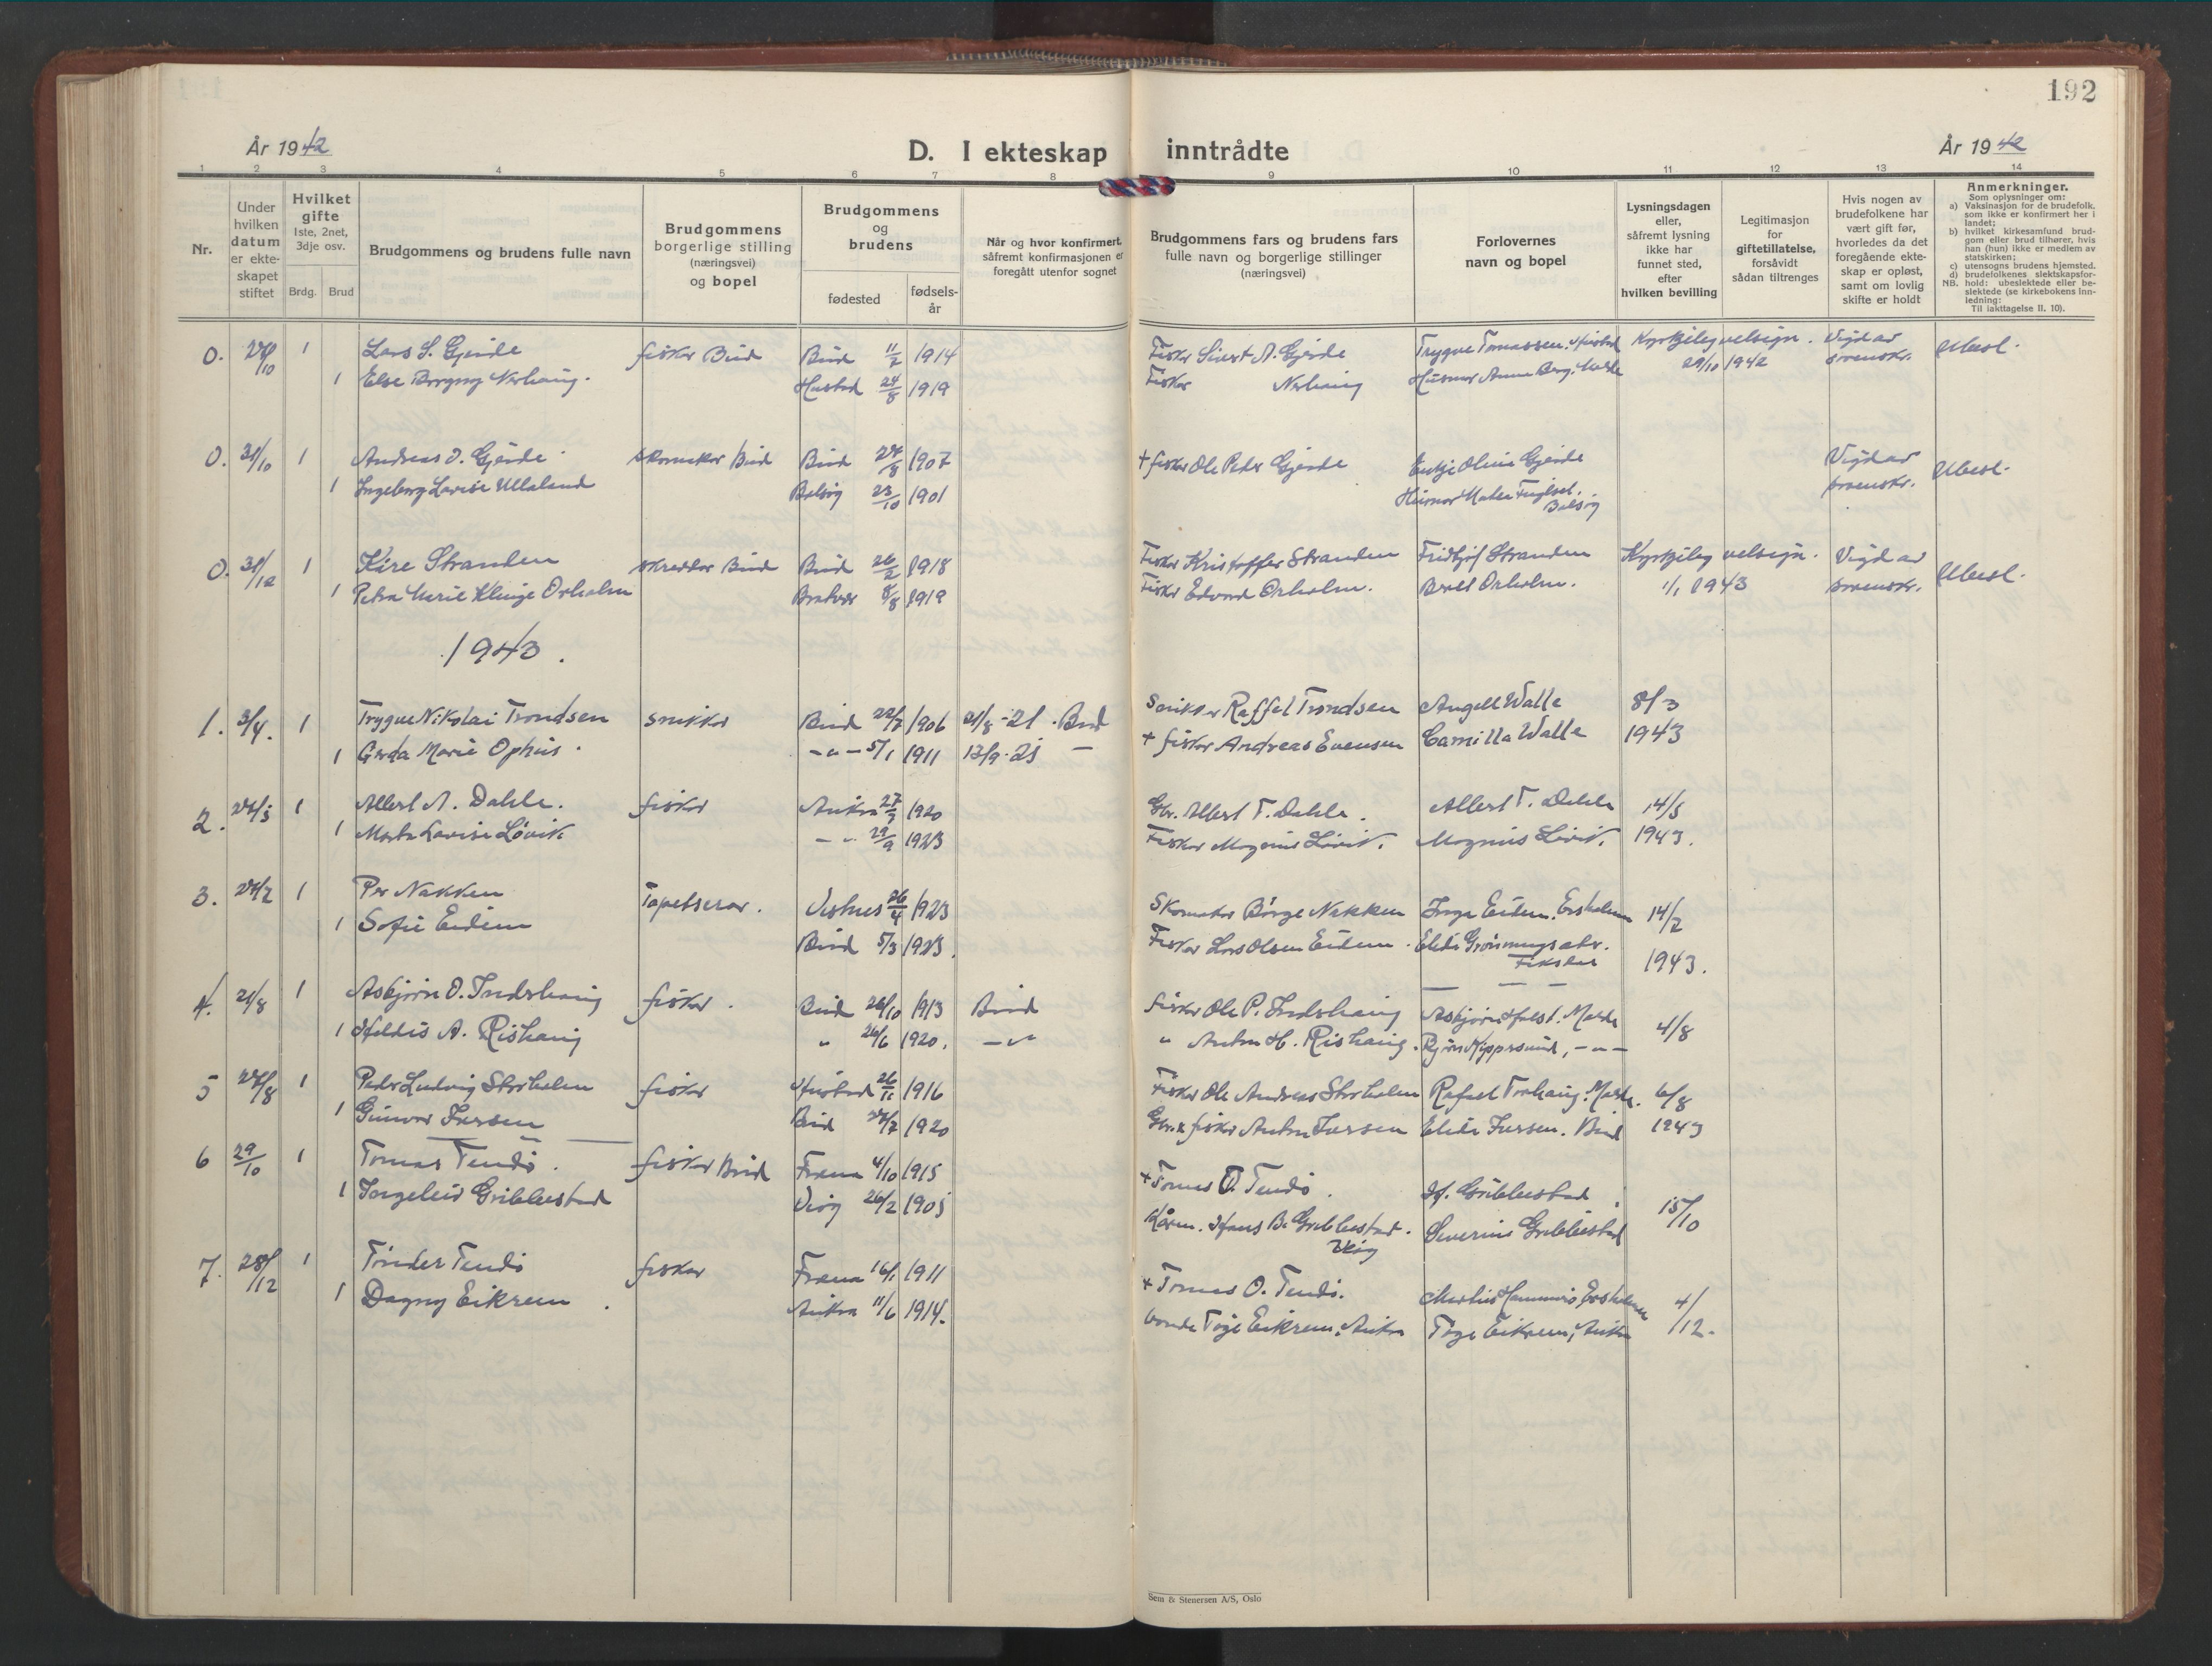 192
År 1942
D. I ekteskap inntrådte
År 1942
1 2 3 4 5 6 7 8 9 10 11 12 13 14
Nr.
Under
hvilken
datum
er ekte-
skapet
stiftet
Hvilket
gifte
1ste, 2net,
3dje osv.
Brdg. Brud
Brudgommens og brudens fulle navn
Brudgommens
borgerlige stilling
(næringsvei)
og bopel
Brudgommens
og
brudens
fødested
fødsels-
år
Når og hvor konfirmert,
såfremt konfirmasjonen er
foregått utenfor sognet
Brudgommens fars og brudens fars
fulle navn og borgerlige stillinger
(næringsvei)
Forlovernes
navn og bopel
Lysningsdagen
eller,
såfremt lysning
ikke har
funnet sted,
efter
hvilken bevilling
Legitimasjon
for
giftetillatelse,
forsåvidt
sådan tiltrenges
Hvis nogen av
brudefolkene har
vært gift før,
hvorledes da det
foregående ekte-
skap er opløst,
samt om lovlig
skifte er holdt
Anmerkninger.
Som oplysninger om:
a) Vaksinasjon for de brudefolk.
som ikke er konfirmert her i
landet;
b) hvilket kirkesamfund brud-
gom eller brud tilhører, hvis
han (hun) ikke er medlem av
statskirken;
c) utensogns brudens hjemsted.
d) brudefolkenes slektskapsfor-
NB. hold: ubeslektede eller be-
slektede (se kirkebokens Inn-
ledning:
Til iakttagelse II. 10).
0. 1 Lars S. Gjerde fisker Bud Bud 11/2 1914 Fisker Sivert A. Gjerde Trygve Tomassen. Hustad Kyrkjeleg velsign. Vigd av Ubesl.
1 Else Borgny Nerhaug. Hustad 24/8 1919 Fisker Nerhaug Husmor Anna Berg. Molde 29/10 1942 sorenskr.
0. 31/10 1 Andreas O. Gjerde skomaker Bud Bud 1907 + fisker Ole Peder Gjerde Enkje Oline Gjerde Vigd av Ubesl.
1 Ingeborg Lovise Ullaland Bolsøy 23/10 1901 Husmor sorenskr.
Bolsøy
0. 31/12 1 Kåre Stranden skredder Bud Bud 26/2 1918 Fisker Kristoffer Stranden Fridtjof Stranden Kyrkjeleg velsign. Vigd av Ubesl.
1 Petra Marie Klinge Orholm 8/8 1919 Fisker Edvard Orholm. Orholm. 1/1 1943 sorenskr.
1943.
1. 3/4. 1 Trygve Nikolai Trondsen snikker Bud 22/7 1906 21/8-21. Bud Snikker Raffel Trondsen Angell Walle 8/3
1 Gerda Marie Ophus. -"- 5/1 1911 13/9-25 - + fisker Andreas Evensen Camilla Walle 1943
2. 24/5 1 Allert A. Dahle. fisker Aukra 1920 Gbr. Allert T. Dahle. Allert T. Dahle 14/5
1 Marta Lovise Løvik -"- 29/9 1923 Fisker Magnus Løvik. Magnus Løvik. 1943.
3. 24/7 1 Per Nakken Tapetserer. 26/4 1923 Skomaker Børge Nakken Inga Eidem. 14/7
1 Sofie Eidem Bud 5/3 1923. Fisker Lars Olsen Eidem. 1943.
4. 21/8 1 Asbjørn O. Indrehaug fisker. Bud 26/10 1913 Bud fisker Ole P. Indrehaug Asbjørn 4/8
1 Heldis A. Rishaug " 26/6 1920. -"- " Anton H. Rishaug. Bjørn -"-
5 24/8 1 Peder Ludvig Storholm fisker Hustad 26/11 1916 Fisker Ole Andreas Storholm Rafael 6/8
1 Gunvor Iversen Bud 24/7 1920 Gbr. & fisker Anton Iversen Elida Iversen. Bud 1943
6 29/10 1 Tomas Tendø. fisker Bud Fræna 4/10 1915 + Tomas O. Tendø. H. Gribbestad 15/10
1 Ingeleiv Gribbestad Veøy 26/2 1905 Hans B. Gribbestad. Severine Gribbestad
Veøy
7. 28/12 1 Tinder Tendø fisker Fræna 16/1 1911 + Tomas O. Tendø. 4/12.
1 Dagny Eikrem. Aukra 11/6 1914. bonde Tøge Eikrem, Aukra Tøge Eikrem, Aukra
Sem & Stenersen A/S, Oslo